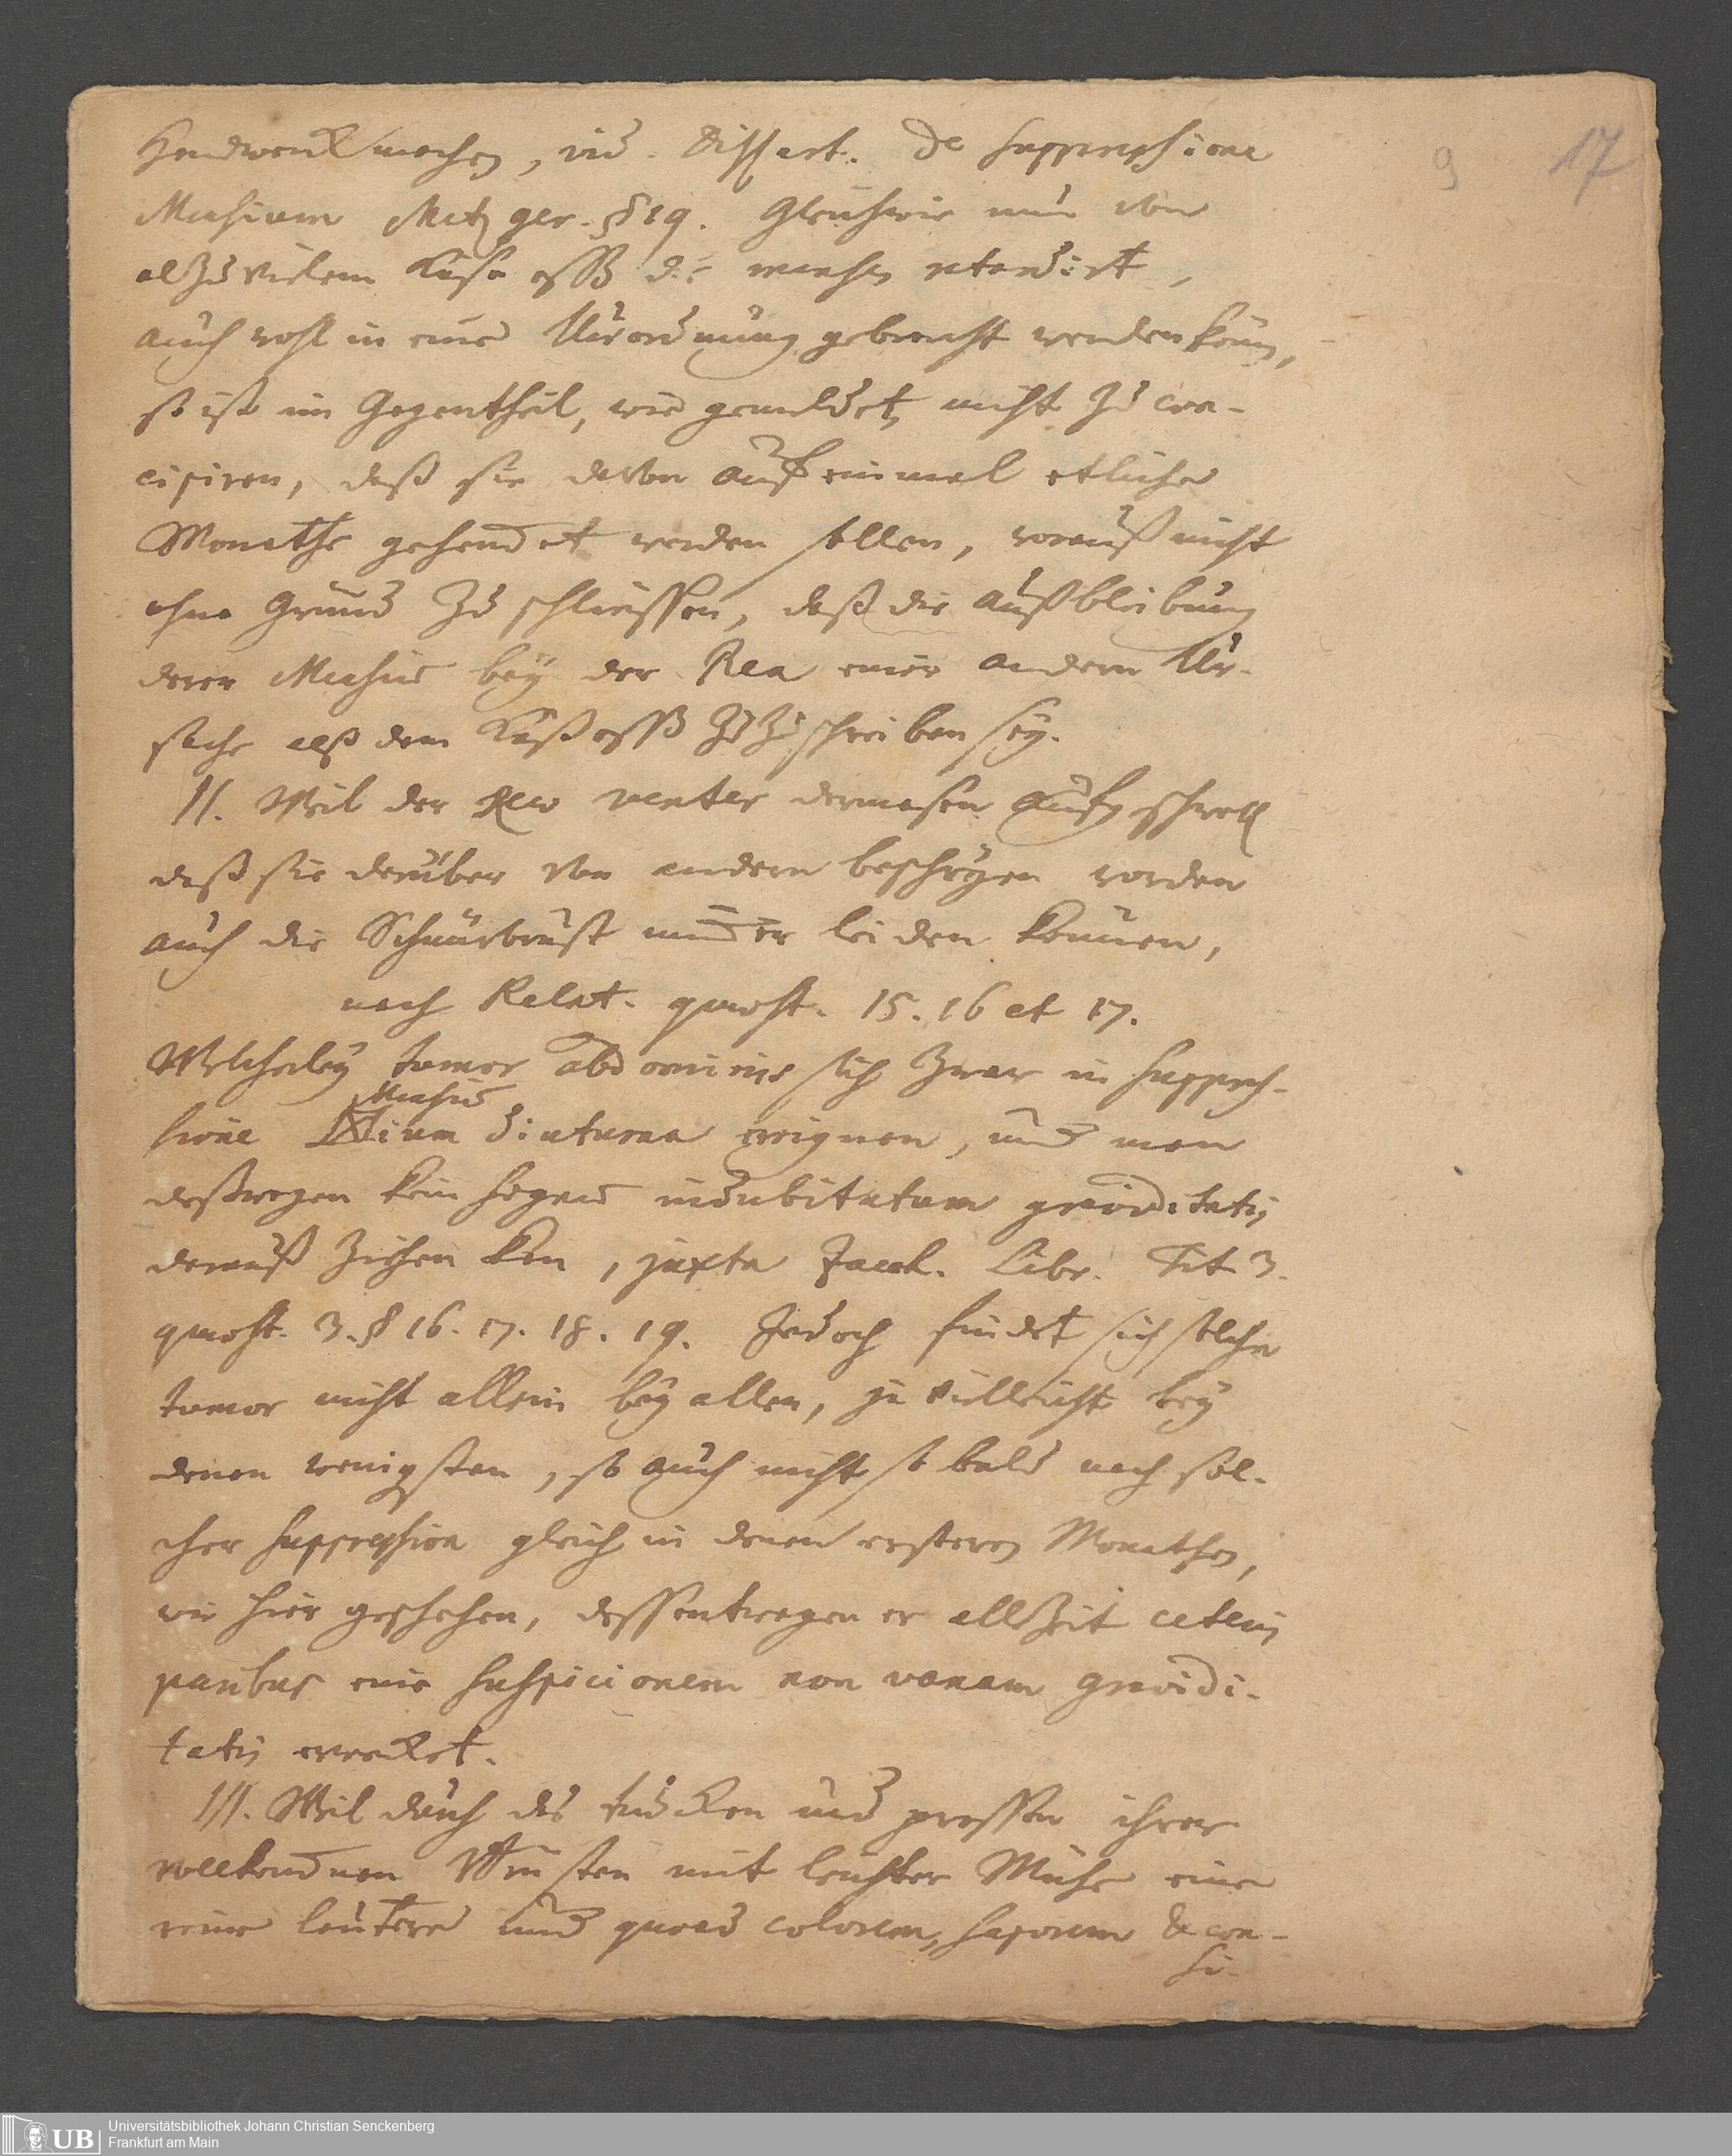 Handwerck machen, vid. Dissert. de suppressione
Mensium Metzger. § 19. Gleichwie nun von
alzu vielem Käse eß die menses retardirt,
auch wohl in eine Unordnung gebracht werden könen,
so ist im Gegentheil, wie gemeldet, nicht zu con-
cipiren, daß sie davon auf einmal etliche
Monathe gehemdet werden sollen, worauß nicht
ohne Grund zu schliessen, daß die Außbleibung
derer Mensium bey der Rea einer andern Ur-
sache alß dem Käß eß zuzuschreiben sey.
II. Weil der Reae venter dermasen aufgeschwoll
daß sie darüber von andern beschryen worden
auch die Schnürbrust nicht leiden können,
nach Relat. quaest. 15. 16 et 17.
Welcherley tumor abdominis sich zwar in suppres-
Mensium
sione diuturna ereignen, und man
deßwegen kein signum indubitatum graviditatis
darauß ziehen kan, juxta Zacch. Libr. Tit 3.
quaest. 3. § 16. 17. 18. 19. Jedoch findet sich solcher
tumor nicht allein bey allen, ja vielleicht bey
denen wenigsten, so auch nicht so bald nach sol-
cher suppression gleich in denen ersteren Monathen,
wie hier geschehen, dessentwegen er allzeit ceteris
paribus eine suspicionem non vanam gravidi-
tatis erwecket.
III. Weil durch das trücken und pressen ihrer
Brüsten mit leichter Mühe eine
reine lautere und quoad colorem, saporem & con-
si-
9
17
UB
Universitätsbibliothek Johann Christian Senckenberg
Frankfurt am Main